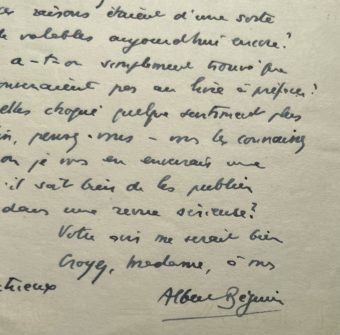 raisons étaient d'une sorte
valables aujourd'hui encore?
a-t-on simplement trouvé que
convenaient pas au livre à préfacer?
elles choqué quelque sentiment plus
pensez-vous - vous les connaissez
je vous en enverrais une
soit bien de les publier
dans une revue sérieuse?
Votre avis me serait bien
Croyez, Madame, à mes
Albert Béguin